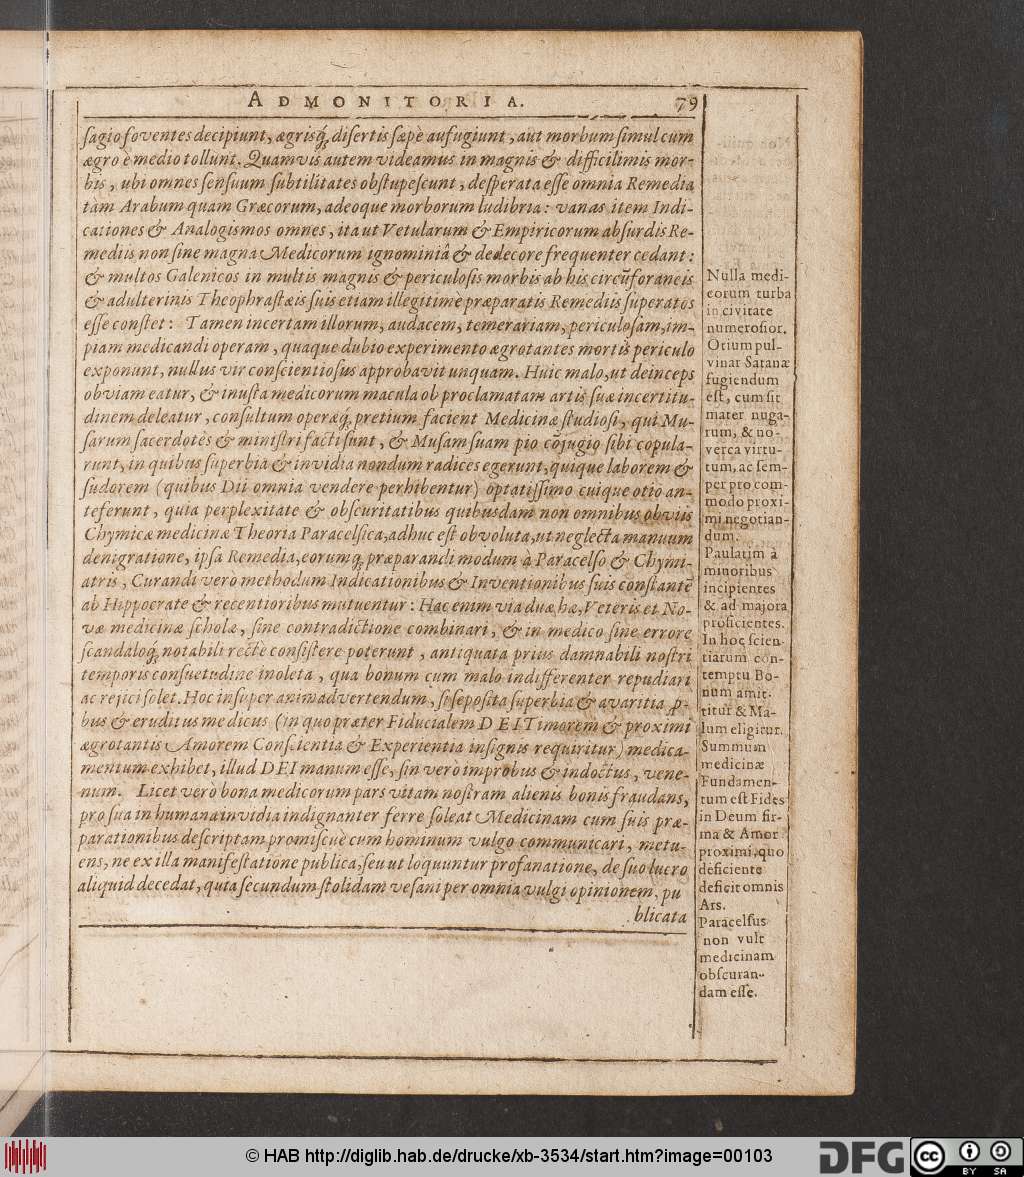 ADMONITORIA. 79
sagio foventes decipiunt, ægrisq́; disertis sæpè aufugiunt, aut morbum simul cum
ægro è medio tollunt. Quamvis autem videamus in magnis & difficilimis mor-
bis, ubi omnes sensuum subtilitates obstupescunt, desperata esse omnia Remedia
tàm Arabum quam Græcorum, adeoque morborum ludibria: vanas item Indi-
cationes & Analogismos omnes, ita ut Vetularum & Empiricorum absurdis Re-
mediis non sine magna Medicorum ignominiâ & dedecore frequenter cedant:
& multos Galenicos in multis magnis & periculosis morbis ab his circũforaneis
& adulterinis Theophrastæis suis etiam illegitimè præparatis Remediis superatos
esse constet: Tamen incertam illorum, audacem, temerariam, periculosam, im-
piam medicandi operam, quaque dubio experimento ægrotantes mortis periculo
exponunt, nullus vir conscientiosus approbavit unquam. Huic malo, ut deinceps
obviam eatur, & inusta medicorum macula ob proclamatam artis suæ incertitu-
dinem deleatur, consultum operæq́; pretium facient Medicinæ studiosi, qui Mu-
sarum sacerdotes & ministri facti sunt, & Musam suam pio cõjugio sibi copula-
runt, in quibus superbia & invidia nondum radices egerunt, quique laborem &
sudorem (quibus Dii omnia vendere perhibentur) optatissimo cuique otio an-
teferunt, quia perplexitate & obscuritatibus quibusdam non omnibus obviis
Chymicæ medicinæ Theoria Paracelsica, adhuc est obvoluta, ut neglecta manuum
denigratione, ipsa Remedia, eorumq́; præparandi modum à Paracelso & Chymi-
atris, Curandi verò methodum Indicationibus & Inventionibus suis constantẽ
ab Hippocrate & recentioribus mutuentur: Hac enim via duæ hæ, Veteris et No-
væ medicinæ scholæ, sine contradictione combinari, & in medico sine errore
scandaloq́; notabili rectè consistere poterunt, antiquata prius damnabili nostri
temporis consuetudine inoleta, qua bonum cum malo indifferenter repudiari
ac rejici solet. Hoc insuper animadvertendum, si seposita superbia & avaritia p-
bus & eruditus medicus (in quo præter Fiducialem DEI Timorem & proximi
ægrotantis Amorem Conscientia & Experientia insignis requiritur) medica-
mentum exhibet, illud DEI manum esse, sin verò improbus & indoctus, vene-
num. Licet verò bona medicorum pars vitam nostram alienis bonis fraudans,
pro sua inhumana invidia indignanter ferre soleat Medicinam cum suis præ-
parationibus descriptam promiscuè cum hominum vulgo communicari, metu-
ens, ne ex illa manifestatione publica, seu ut loquuntur profanatione, de suo lucro
aliquid decedat, quia secundum stolidam vesani per omnia vulgi opinionem, pu
blicata
Nulla medi-
corum turba
in civitate
numerosior.
Otium pul-
vinar Satanæ
fugiendum
est, cum sit
mater nuga-
rum, & no-
verca virtu-
tum, ac sem-
per pro com-
modo proxi-
mi negotian-
dum.
Paulatim à
minoribus
incipientes
& ad majora
proficientes.
In hoc scien-
tiarum con-
temptu Bo-
num amit-
titur & Ma-
lum eligitur.
Summum
medicinæ
Fundamen-
tum est Fides
in Deum fir-
ma & Amor
proximi, quo
deficiente
deficit omnis
Ars.
Paracelsus
non vult
medicinam
obscuran-
dam esse.
© HAB http://diglib.hab.de/drucke/xb-3534/start.htm?image=00103
DFG
cc BY SA